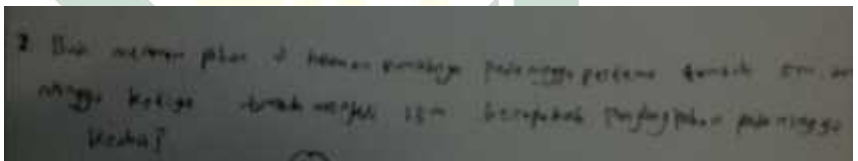 2. Budi menanam pohon di halaman rumahnya pada minggu pertama tumbuh 5m,
minggu ketiga tumbuh menjadi 15m berapakah panjang pohon pada minggu
kedua?